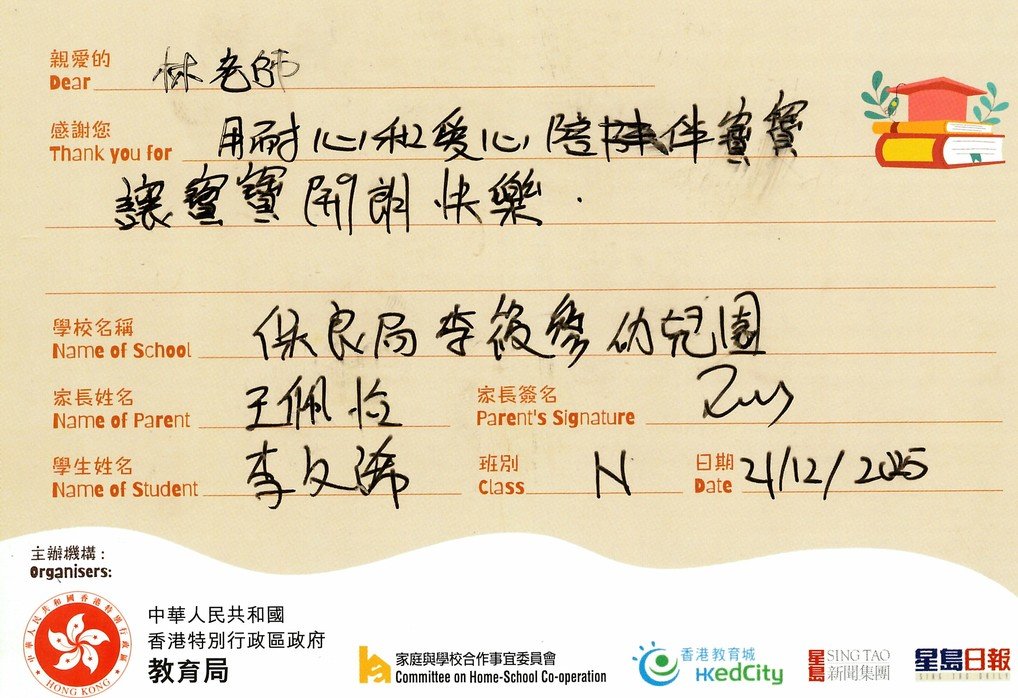 親愛的
Dear 林老師
感謝您
Thank you for 用耐心和愛心陪伴寶寶
讓寶寶開朗快樂.
學校名稱
Name of School 保良局李筱參幼兒園
家長姓名 家長簽名
Name of Parent 王佩怡 Parent's Signature
學生姓名 班別 日期
Name of Student 李文浠 Class N Date 21/12/2025
主辦機構:
Organisers:
中華人民共和國香港特別行政區
HONG KONG
中華人民共和國
香港特別行政區政府
教育局
家庭與學校合作事宜委員會
Committee on Home-School Co-operation
香港教育城
HKedCity
星島 SING TAO
新聞集團
星島日報
SING TAO DAILY